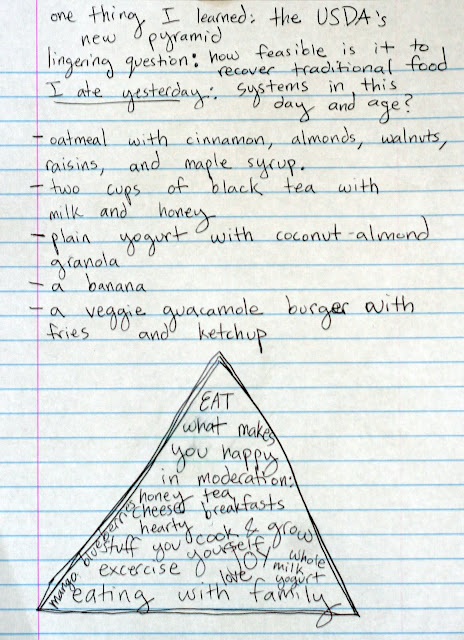 one thing I learned: the USDA's
new pyramid
lingering question: how feasible is it to
recover traditional food
I ate yesterday: systems in this
day and age?
- oatmeal with cinnamon, almonds, walnuts,
raisins, and maple syrup.
- two cups of black tea with
milk and honey
- plain yogurt with coconut-almond
granola
- a banana
- a veggie guacamole burger with
fries and ketchup
EAT
what makes
you happy
in moderation:
honey tea
cheese breakfasts
hearty
stuff you cook & grow
yourself
excercise JOY whole
milk
love yogurt
mango blueberries
eating with family